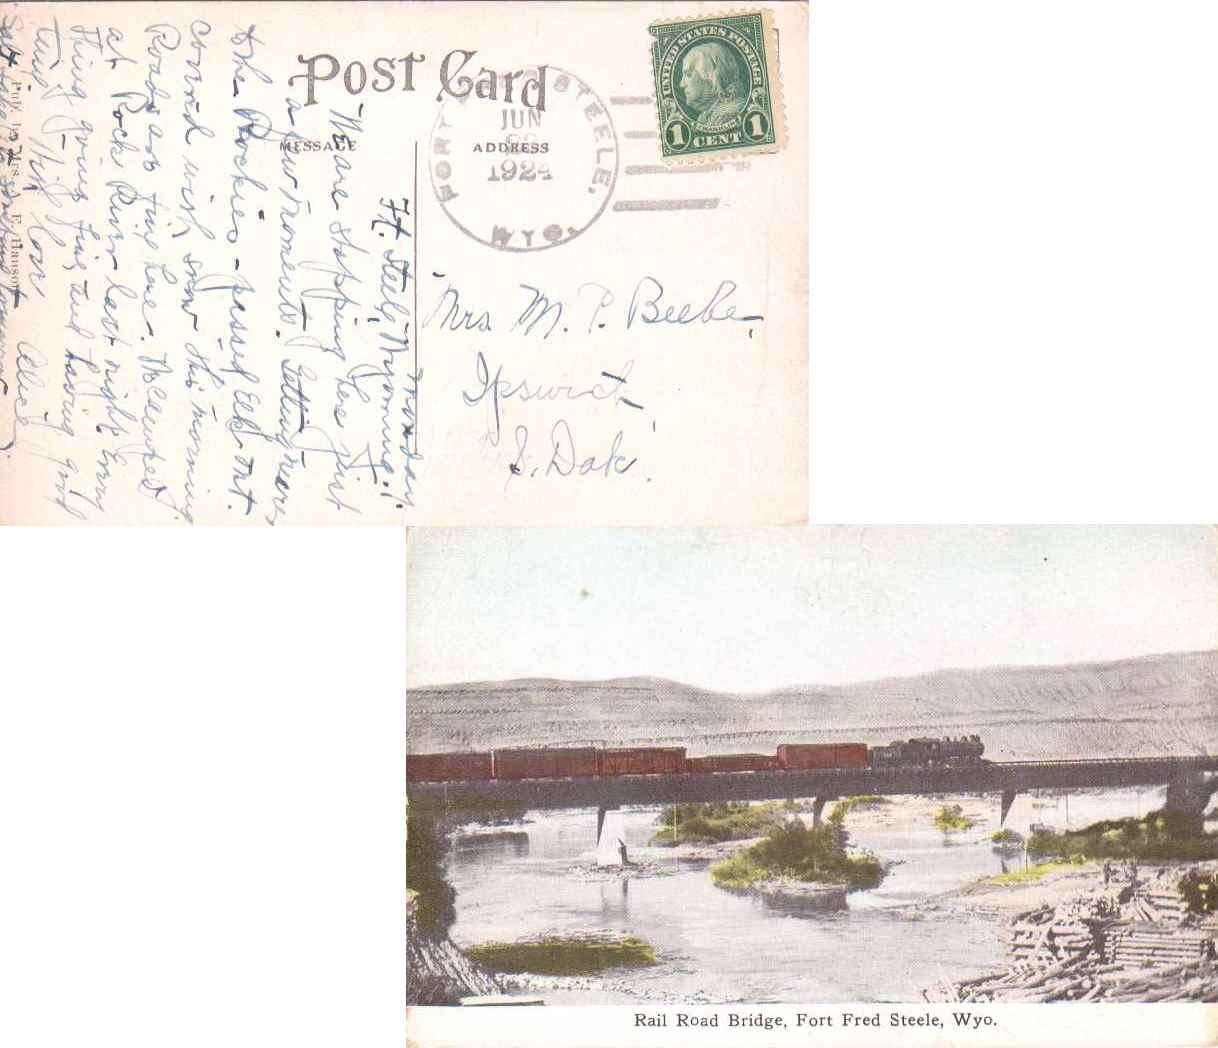 Post Card
MESSAGE
ADDRESS
FORT STEELE,
JUN
1924
WYO.
UNITED STATES POSTAGE
FRANKLIN
1 CENT 1
Ft. Steele, Wyoming.
Monday.
We are stopping here just
a few moments. Getting near
the Rockies - passed Elk Mt.
covered with snow this morning
Roads are fine here. We camped
at Rock River last night. Every
thing going fine and having good
time - With love Alice
Pub. by Mrs. E. Hanson
Mrs. M. P. Beebe,
Ipswich,
S. Dak.
Rail Road Bridge, Fort Fred Steele, Wyo.